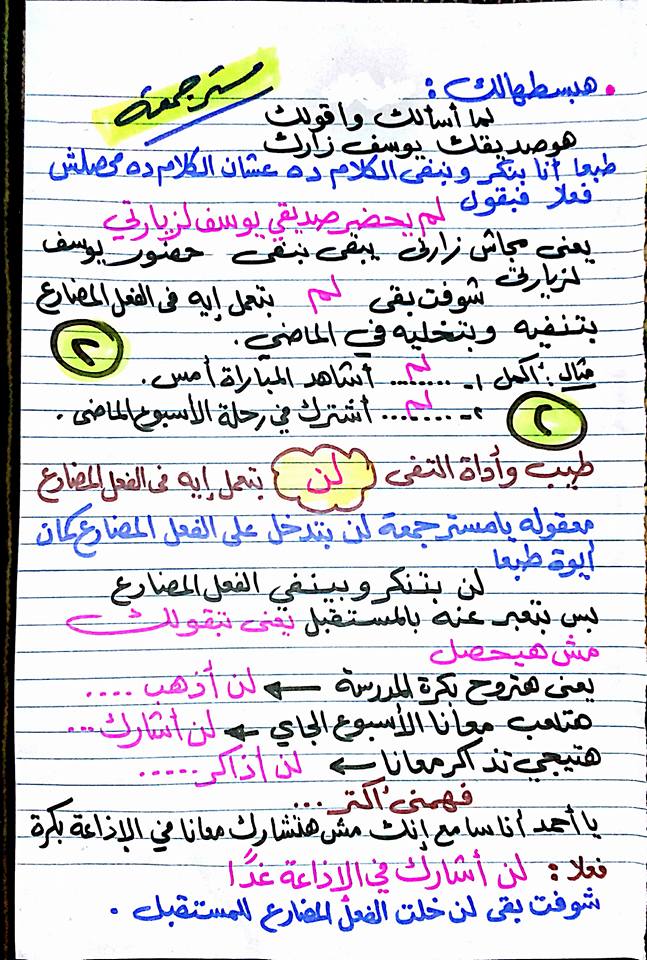 مستر جمعة
• هبسطهالك :
لما أسألك وأقولك
هو صديقك يوسف زارك
طبعا أنا بنكر وبنفى الكلام ده عشان الكلام ده محصلش
فعلا فبقول
لم يحضر صديقي يوسف لزيارتي
يعنى مجاش زارنى يبقى بنفى حضور يوسف
لزيارتى
شوفت بقى لم بتعمل إيه فى الفعل المضارع
بتنفيه وبتخليه في الماضي.
٢
مثال : أكمل ١- ....لم.... أشاهد المباراة أمس.
٢- ....لم.... أشترك في رحلة الأسبوع الماضى .
٢
طيب وأداة النفى لن بتعمل إيه فى الفعل المضارع
معقوله يا مستر جمعة لن بتدخل على الفعل المضارع كمان
أيوة طبعا
لن بتنكر وبينفي الفعل المضارع
بس بتعبر عنه بالمستقبل يعنى بتقولك
مش هيحصل
يعنى هتروح بكرة المدرسة ← لن أذهب ....
هتلعب معانا الأسبوع الجاي ← لن أشارك...
هتيجي تذاكر معانا ← لن أذاكر.....
فهمنى أكتر ...
يا أحمد أنا سامع إنك مش هتشارك معانا في الإذاعة بكرة
فعلا : لن أشارك في الإذاعة غدًا
شوفت بقى لن خلت الفعل المضارع للمستقبل .